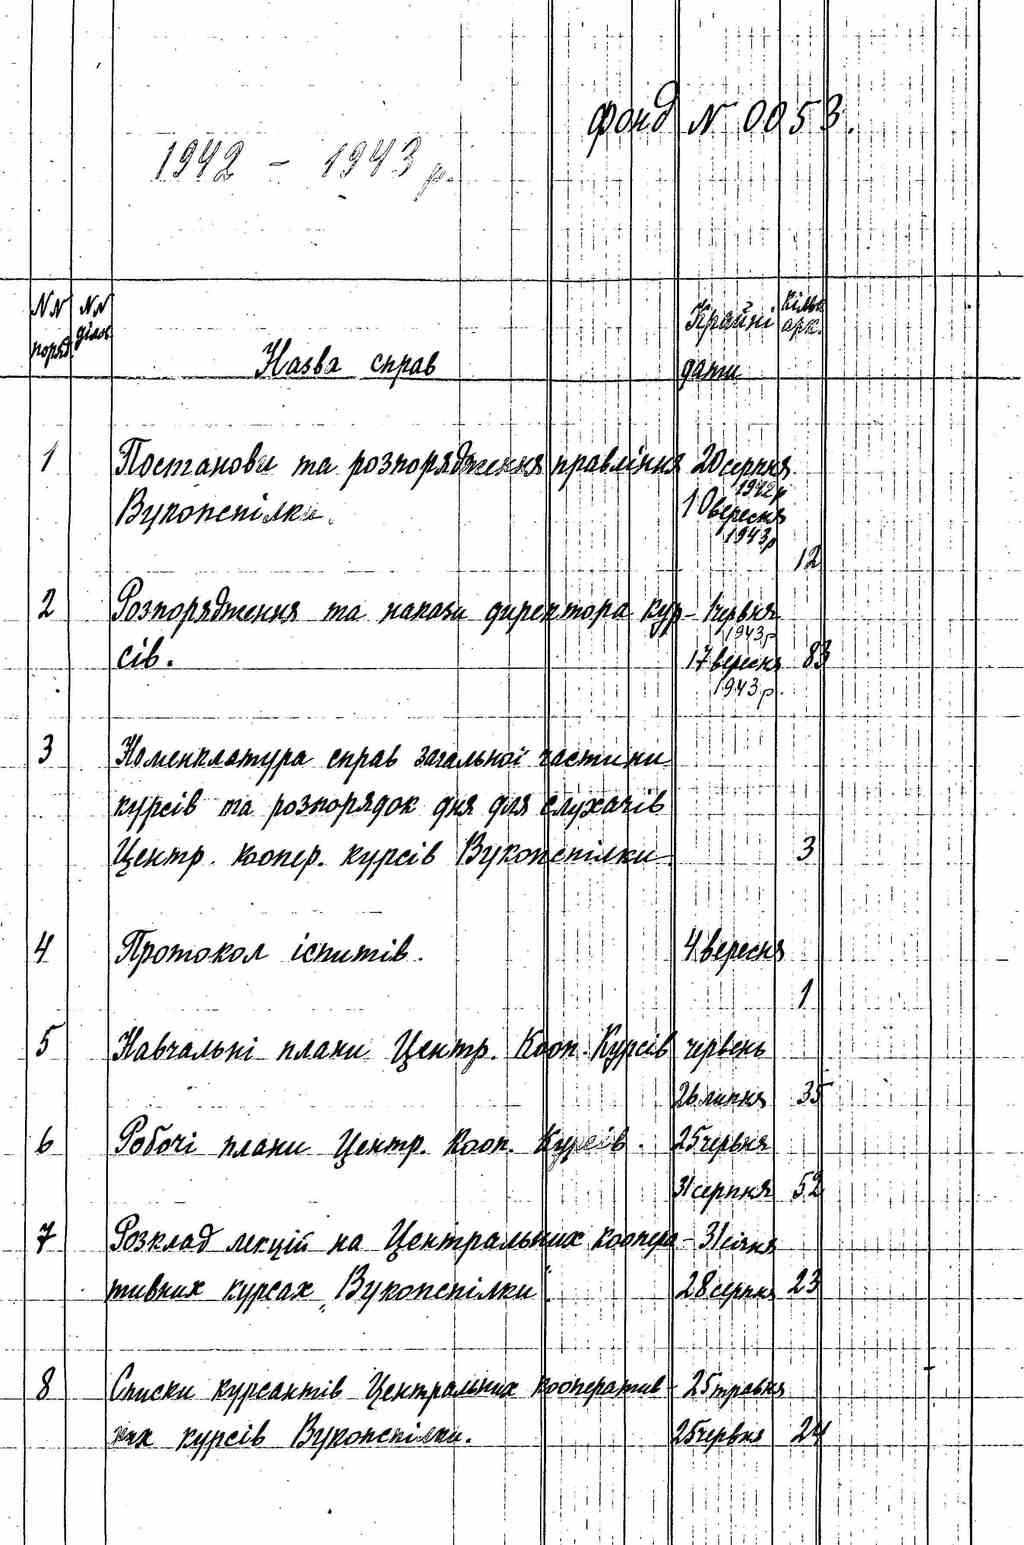 фонд N 0053.
1942 - 1943 р.
NN поряд.
NN
Назва справ
Крайні дати
Кільк. арк.
1 Постанови та розпорядження правління 20 серпня 1942р
Вукопспілки. 10 вересня 1943р
12
2 Розпорядження та накази директора кур- 1 червня 1943р
сів. 17 вересня 83
1943р.
3 Номенклатура справ загальної частини
курсів та розпорядок дня для слухачів
Центр. коопер. курсів Вукопспілки 3
4 Протокол іспитів. 4 вересня
1
5 Навчальні плани Центр. Кооп. Курсів червень
26 липня 35
6 Робочі плани Центр. Кооп. Курсів. 25 червня
31 серпня 52
7 Розклад лекцій на Центральних коопера- 31 січня
тивних курсах „Вукопспілки". 28 серпня 23
8 Списки курсантів Центральних кооператив- 25 травня
них курсів Вукопспілки. 25 червня 24